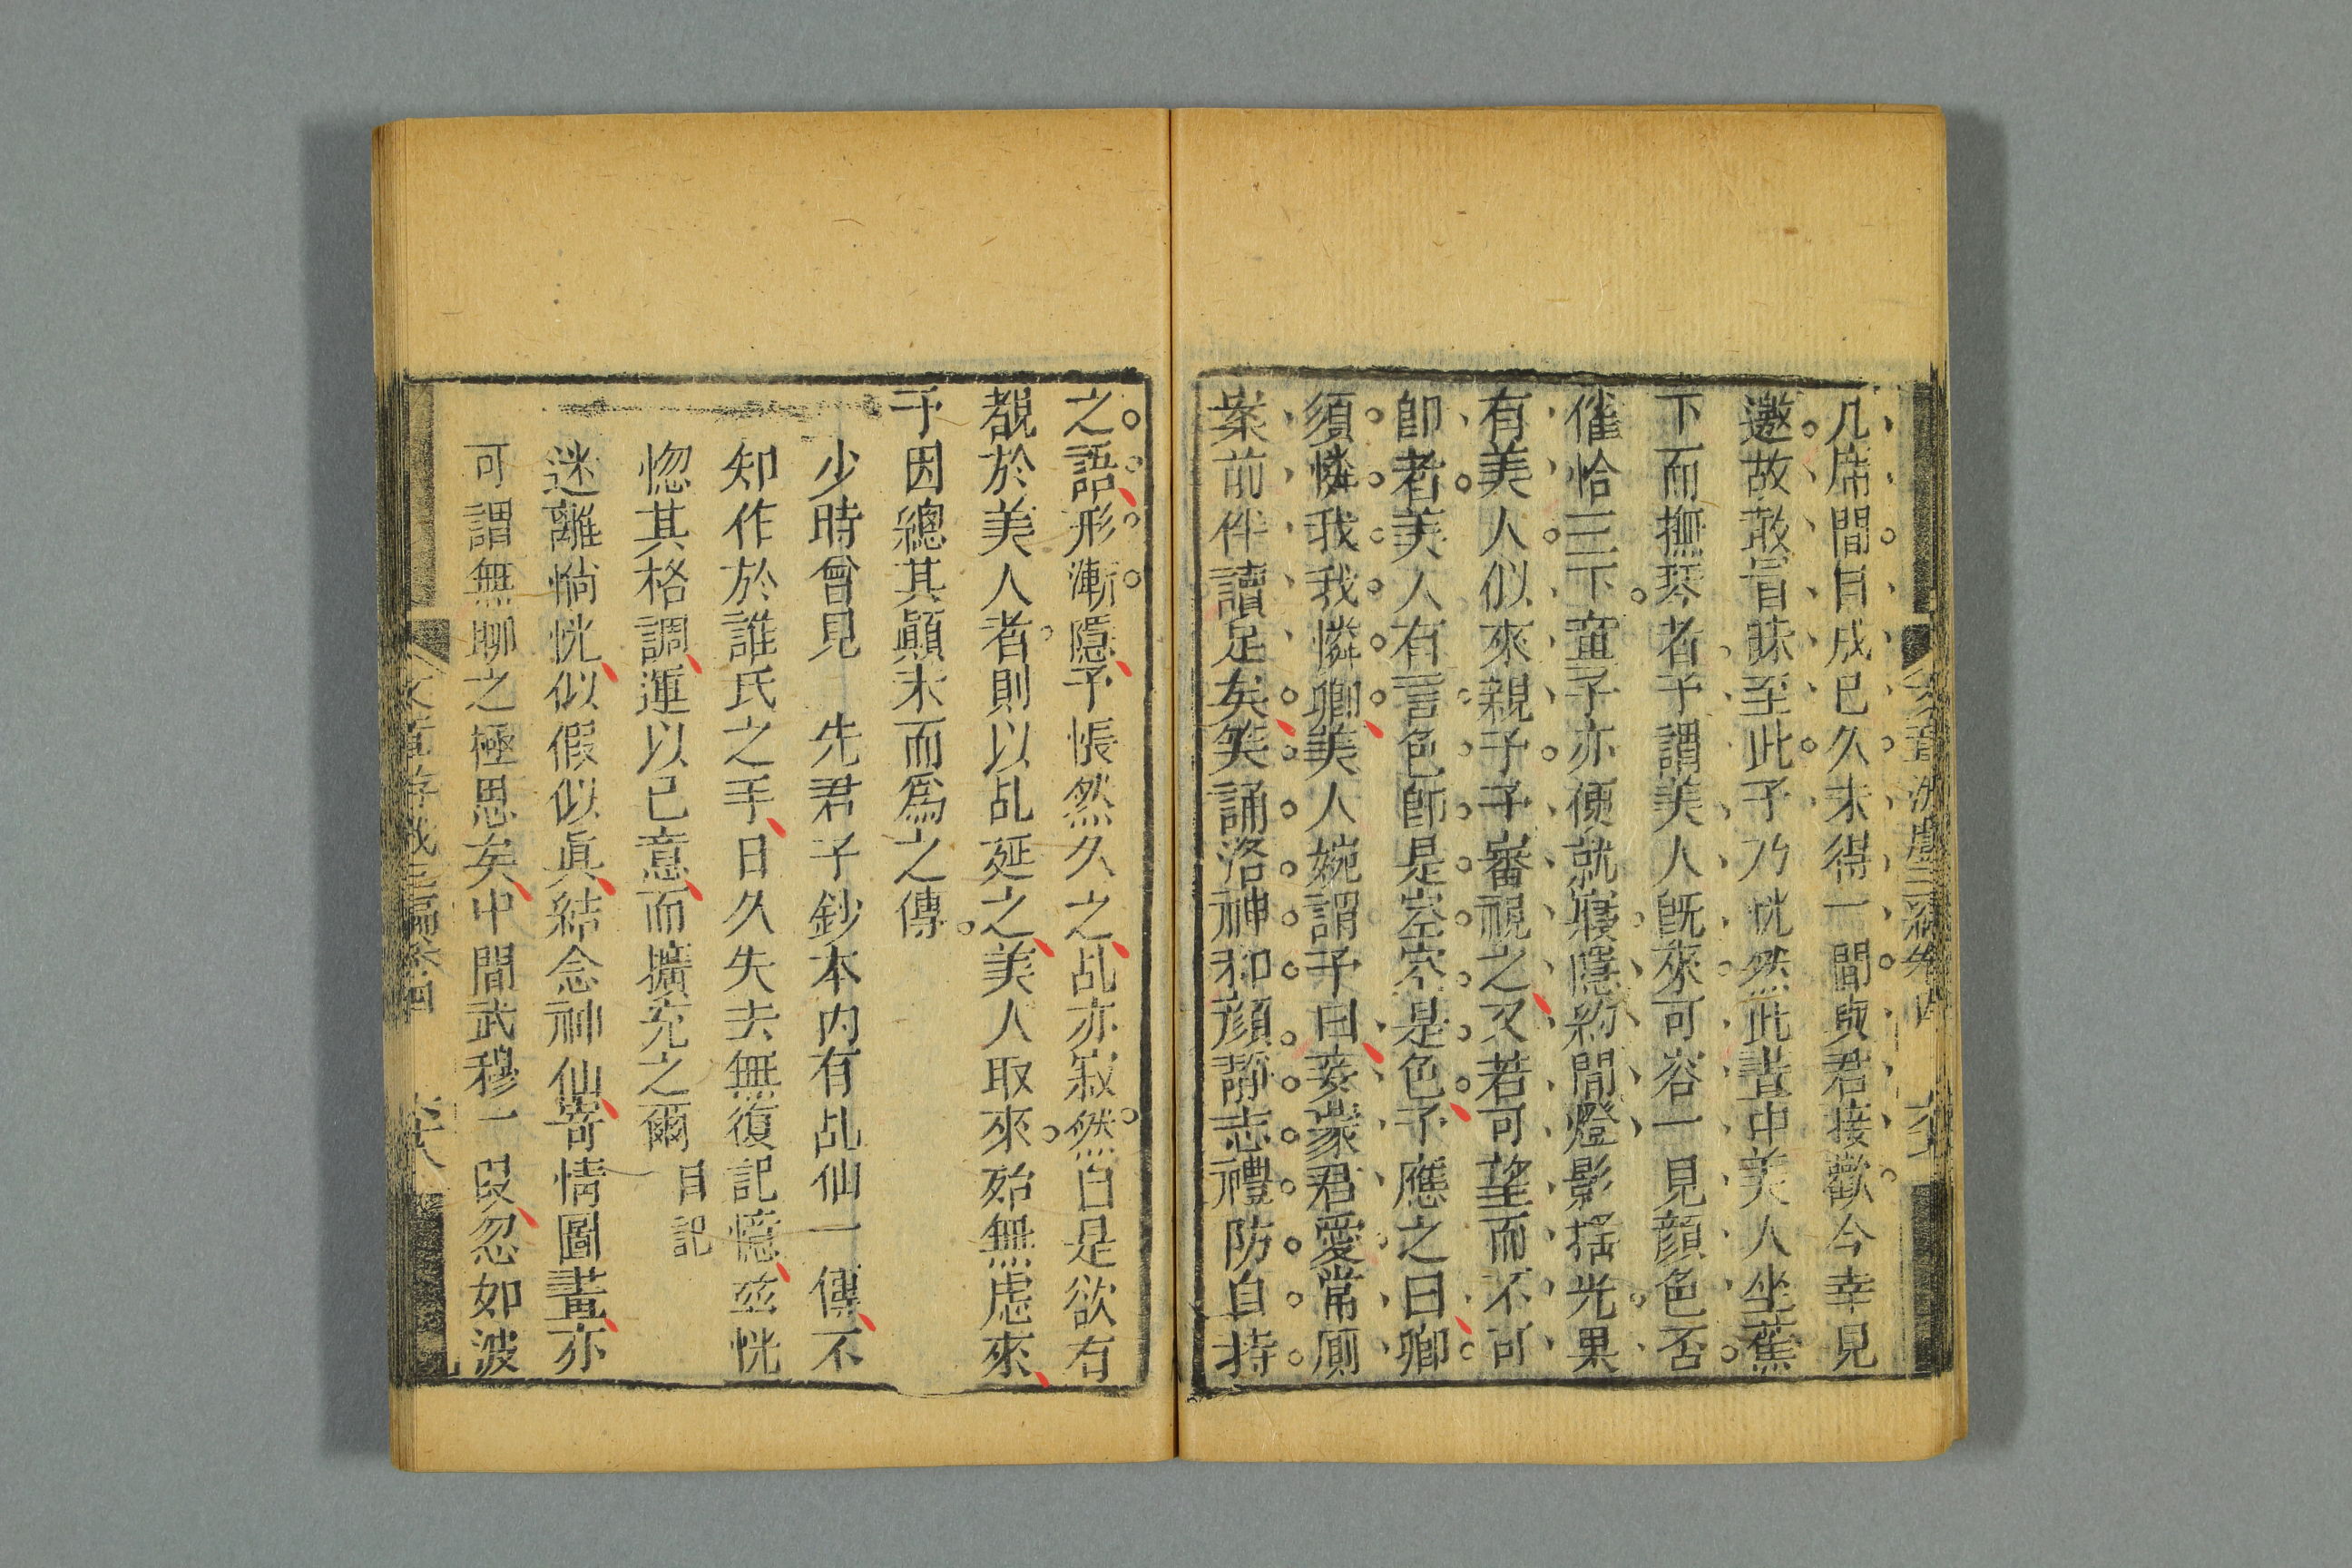 几席間目成已久未得一間與君接歡今幸見
邀故敢冒昧至此予乃恍然此畫中美人坐蕉
下而撫琴者予謂美人旣來可容一見顔色否
催恰三下童子亦便就寢隱約間燈影揺光果
有美人似來親予予審視之又若可望而不可
卽者美人有言色卽是空空是色予應之曰卿
須憐我我憐卿美人婉謂予曰妾蒙君愛常厠
案前伴讀足矣笑誦洛神和顔靜志禮防自持
之語形漸隱予悵然久之乩亦寂然自是欲有
覩於美人者則以乩延之美人取來殆無虚來
予因總其顛末而爲之傳
少時曾見 先君子鈔本内有乩仙一傳不
知作於誰氏之手日久失去無復記憶玆恍
惚其格調運以已意而擴充之爾 自記
迷離惝恍似假似眞結念神仙寄情圖畫亦
可謂無聊之極思矣中間武穆一段忽如波
文章游戲三編卷四 六八